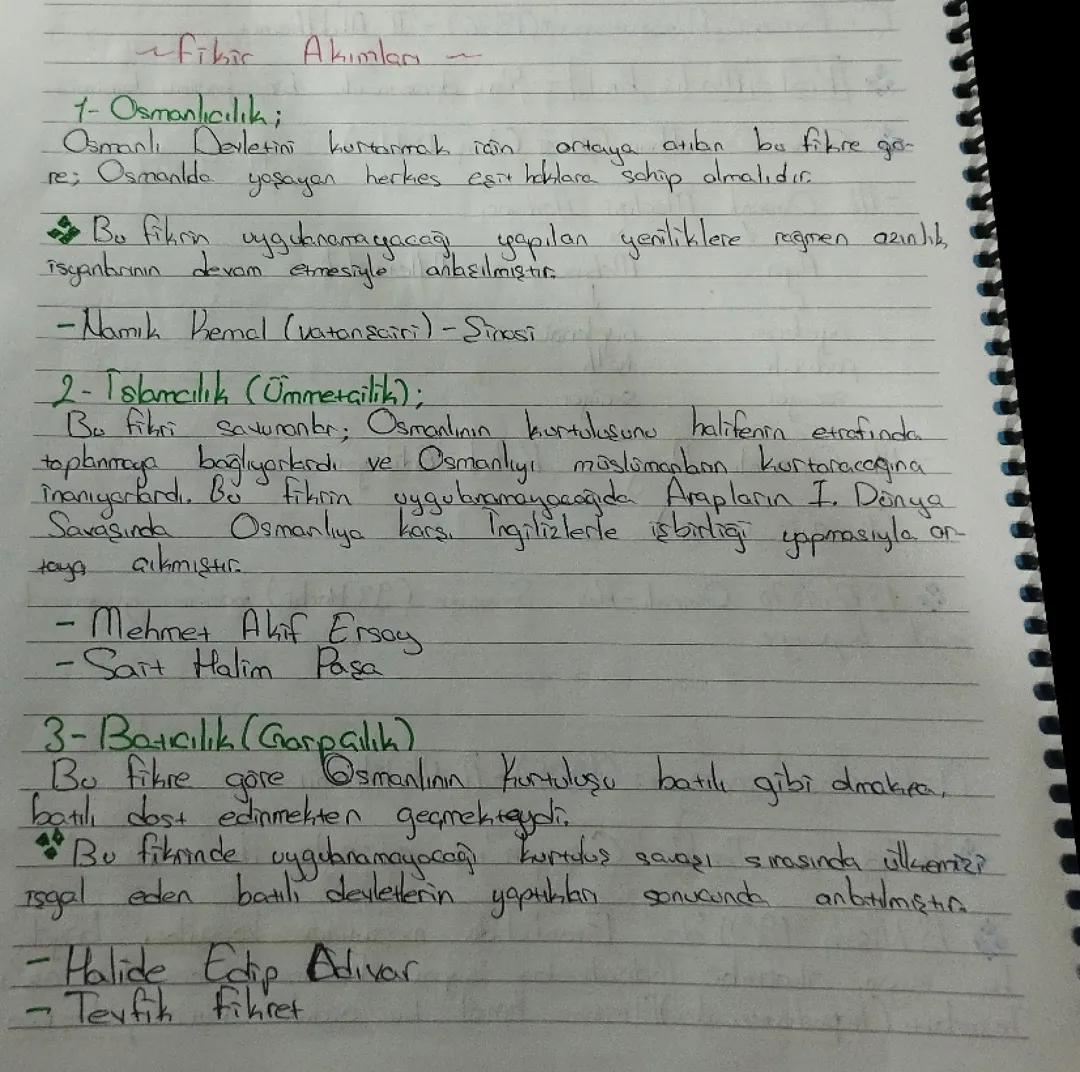 ~ Fikir Akımları ~
1- Osmanlıcılık;
Osmanlı Devletini kurtarmak için ortaya atılan bu fikre gö-
re; Osmanlıda yaşayan herkes eşit haklara sahip olmalıdır.
Bu fikrin uygulanamayacağı yapılan yeniliklere rağmen azınlık,
isyanlarının devam etmesiyle anlaşılmıştır.
-Namık Kemal (vatan şairi) - Şinasi
2- İslamcılık (Ümmetçilik);
Bu fikri savunanlar; Osmanlının kurtuluşunu halifenin etrafında
toplanmaya bağlıyorlardı ve Osmanlıyı müslümanların kurtaracağına
inanıyorlardı. Bu fikrin uygulanamayacağıda Arapların I. Dünya
Savaşında Osmanlıya karşı İngilizlerle işbirliği yapmasıyla or-
taya çıkmıştır.
- Mehmet Akif Ersoy
- Sait Halim Paşa
3- Batıcılık (Garpçılık)
Bu fikre göre Osmanlının Kurtuluşu batılı gibi olmakta,
batılı dost edinmekten geçmekteydi.
Bu fikrinde uygulanamayacağı kurtuluş savaşı sırasında ülkemizi
işgal eden batılı devletlerin yaptıkları sonucunda anlatılmıştır.
- Halide Edip Adıvar
- Tevfik Fikret